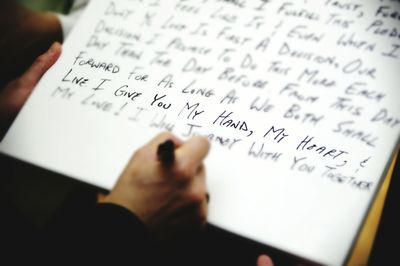 Trust, For
I Shall Fulfill This Pledge
Don't Feel Like It! Even When I
Love Is First A Decision. Our
Decision I Promise To Do This More Each
Day Than The Day Before From This Day
Forward For As Long As We Both Shall
Live I Give You My Hand, My Heart, &
My Love! I Will Journey With You Together